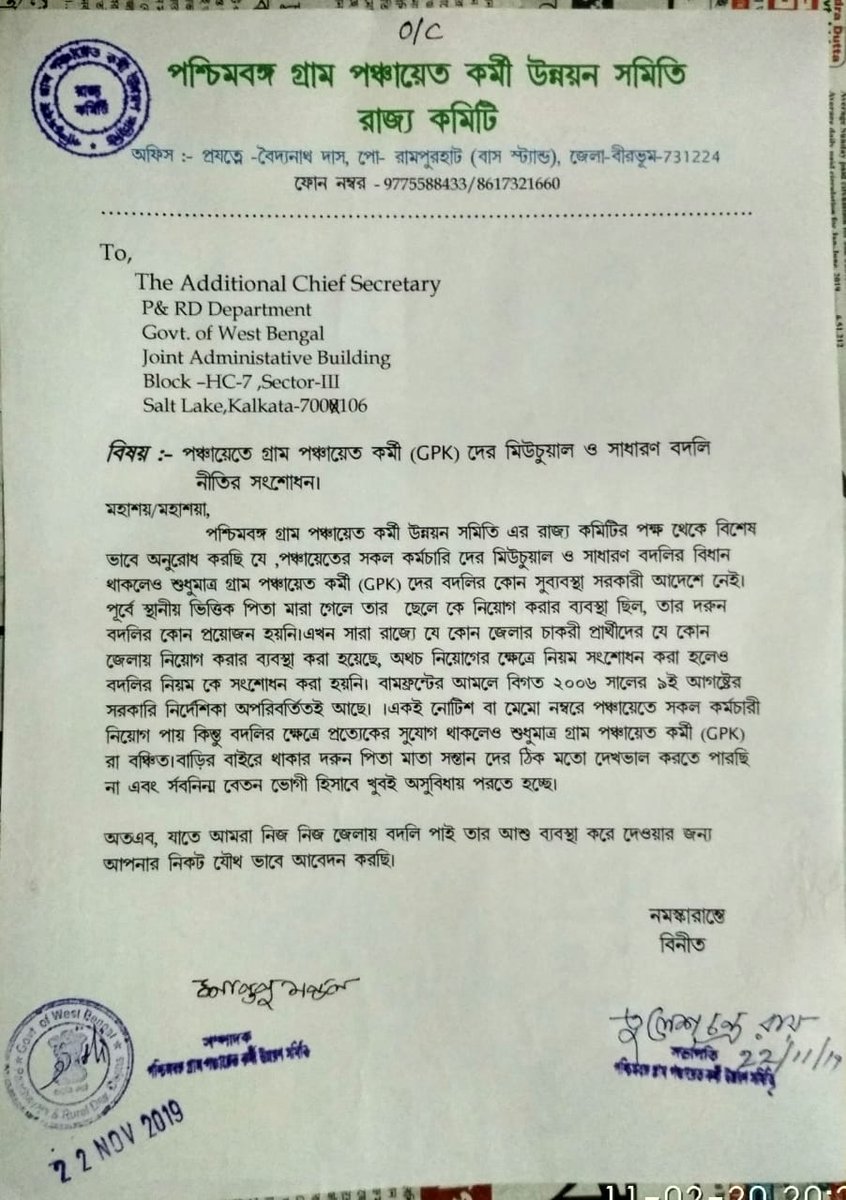 O/C
পশ্চিমবঙ্গ গ্রাম পঞ্চায়েত কর্মী উন্নয়ন সমিতি
রাজ্য কমিটি
অফিস :- প্রযত্নে -বৈদ্যনাথ দাস, পো- রামপুরহাট (বাস স্ট্যান্ড), জেলা-বীরভূম-731224
ফোন নম্বর - 9775588433/8617321660
To,
The Additional Chief Secretary
P& RD Department
Govt. of West Bengal
Joint Administative Building
Block –HC-7 ,Sector-III
Salt Lake,Kalkata-700106
বিষয় :- পঞ্চায়েতে গ্রাম পঞ্চায়েত কর্মী (GPK) দের মিউচুয়াল ও সাধারণ বদলি
নীতির সংশোধন।
মহাশয়/মহাশয়া,
পশ্চিমবঙ্গ গ্রাম পঞ্চায়েত কর্মী উন্নয়ন সমিতি এর রাজ্য কমিটির পক্ষ থেকে বিশেষ
ভাবে অনুরোধ করছি যে ,পঞ্চায়েতের সকল কর্মচারি দের মিউচুয়াল ও সাধারণ বদলির বিধান
থাকলেও শুধুমাত্র গ্রাম পঞ্চায়েত কর্মী (GPK) দের বদলির কোন সুব্যবস্থা সরকারী আদেশে নেই।
পূর্বে স্থানীয় ভিত্তিক পিতা মারা গেলে তার ছেলে কে নিয়োগ করার ব্যবস্থা ছিল, তার দরুন
বদলির কোন প্রয়োজন হয়নি।এখন সারা রাজ্যে যে কোন জেলার চাকরী প্রার্থীদের যে কোন
জেলায় নিয়োগ করার ব্যবস্থা করা হয়েছে, অথচ নিয়োগের ক্ষেত্রে নিয়ম সংশোধন করা হলেও
বদলির নিয়ম কে সংশোধন করা হয়নি। বামফ্রন্টের আমলে বিগত ২০০৬ সালের ৯ই আগষ্টের
সরকারি নির্দেশিকা অপরিবর্তিতই আছে। ।একই নোটিশ বা মেমো নম্বরে পঞ্চায়েতে সকল কর্মচারী
নিয়োগ পায় কিন্তু বদলির ক্ষেত্রে প্রত্যেকের সুযোগ থাকলেও শুধুমাত্র গ্রাম পঞ্চায়েত কর্মী (GPK)
রা বঞ্চিত।বাড়ির বাইরে থাকার দরুন পিতা মাতা সন্তান দের ঠিক মতো দেখভাল করতে পারছি
না এবং র্সবনিন্ম বেতন ভোগী হিসাবে খুবই অসুবিধায় পরতে হচ্ছে।
অতএব, যাতে আমরা নিজ নিজ জেলায় বদলি পাই তার আশু ব্যবস্থা করে দেওয়ার জন্য
আপনার নিকট যৌথ ভাবে আবেদন করছি।
নমস্কারান্তে
বিনীত
সম্পাদক
পশ্চিমবঙ্গ গ্রাম পঞ্চায়েত কর্মী উন্নয়ন সমিতি
সভাপতি
22/11/19
পশ্চিমবঙ্গ গ্রাম পঞ্চায়েত কর্মী উন্নয়ন সমিতি
Govt. of West Bengal
22 NOV 2019